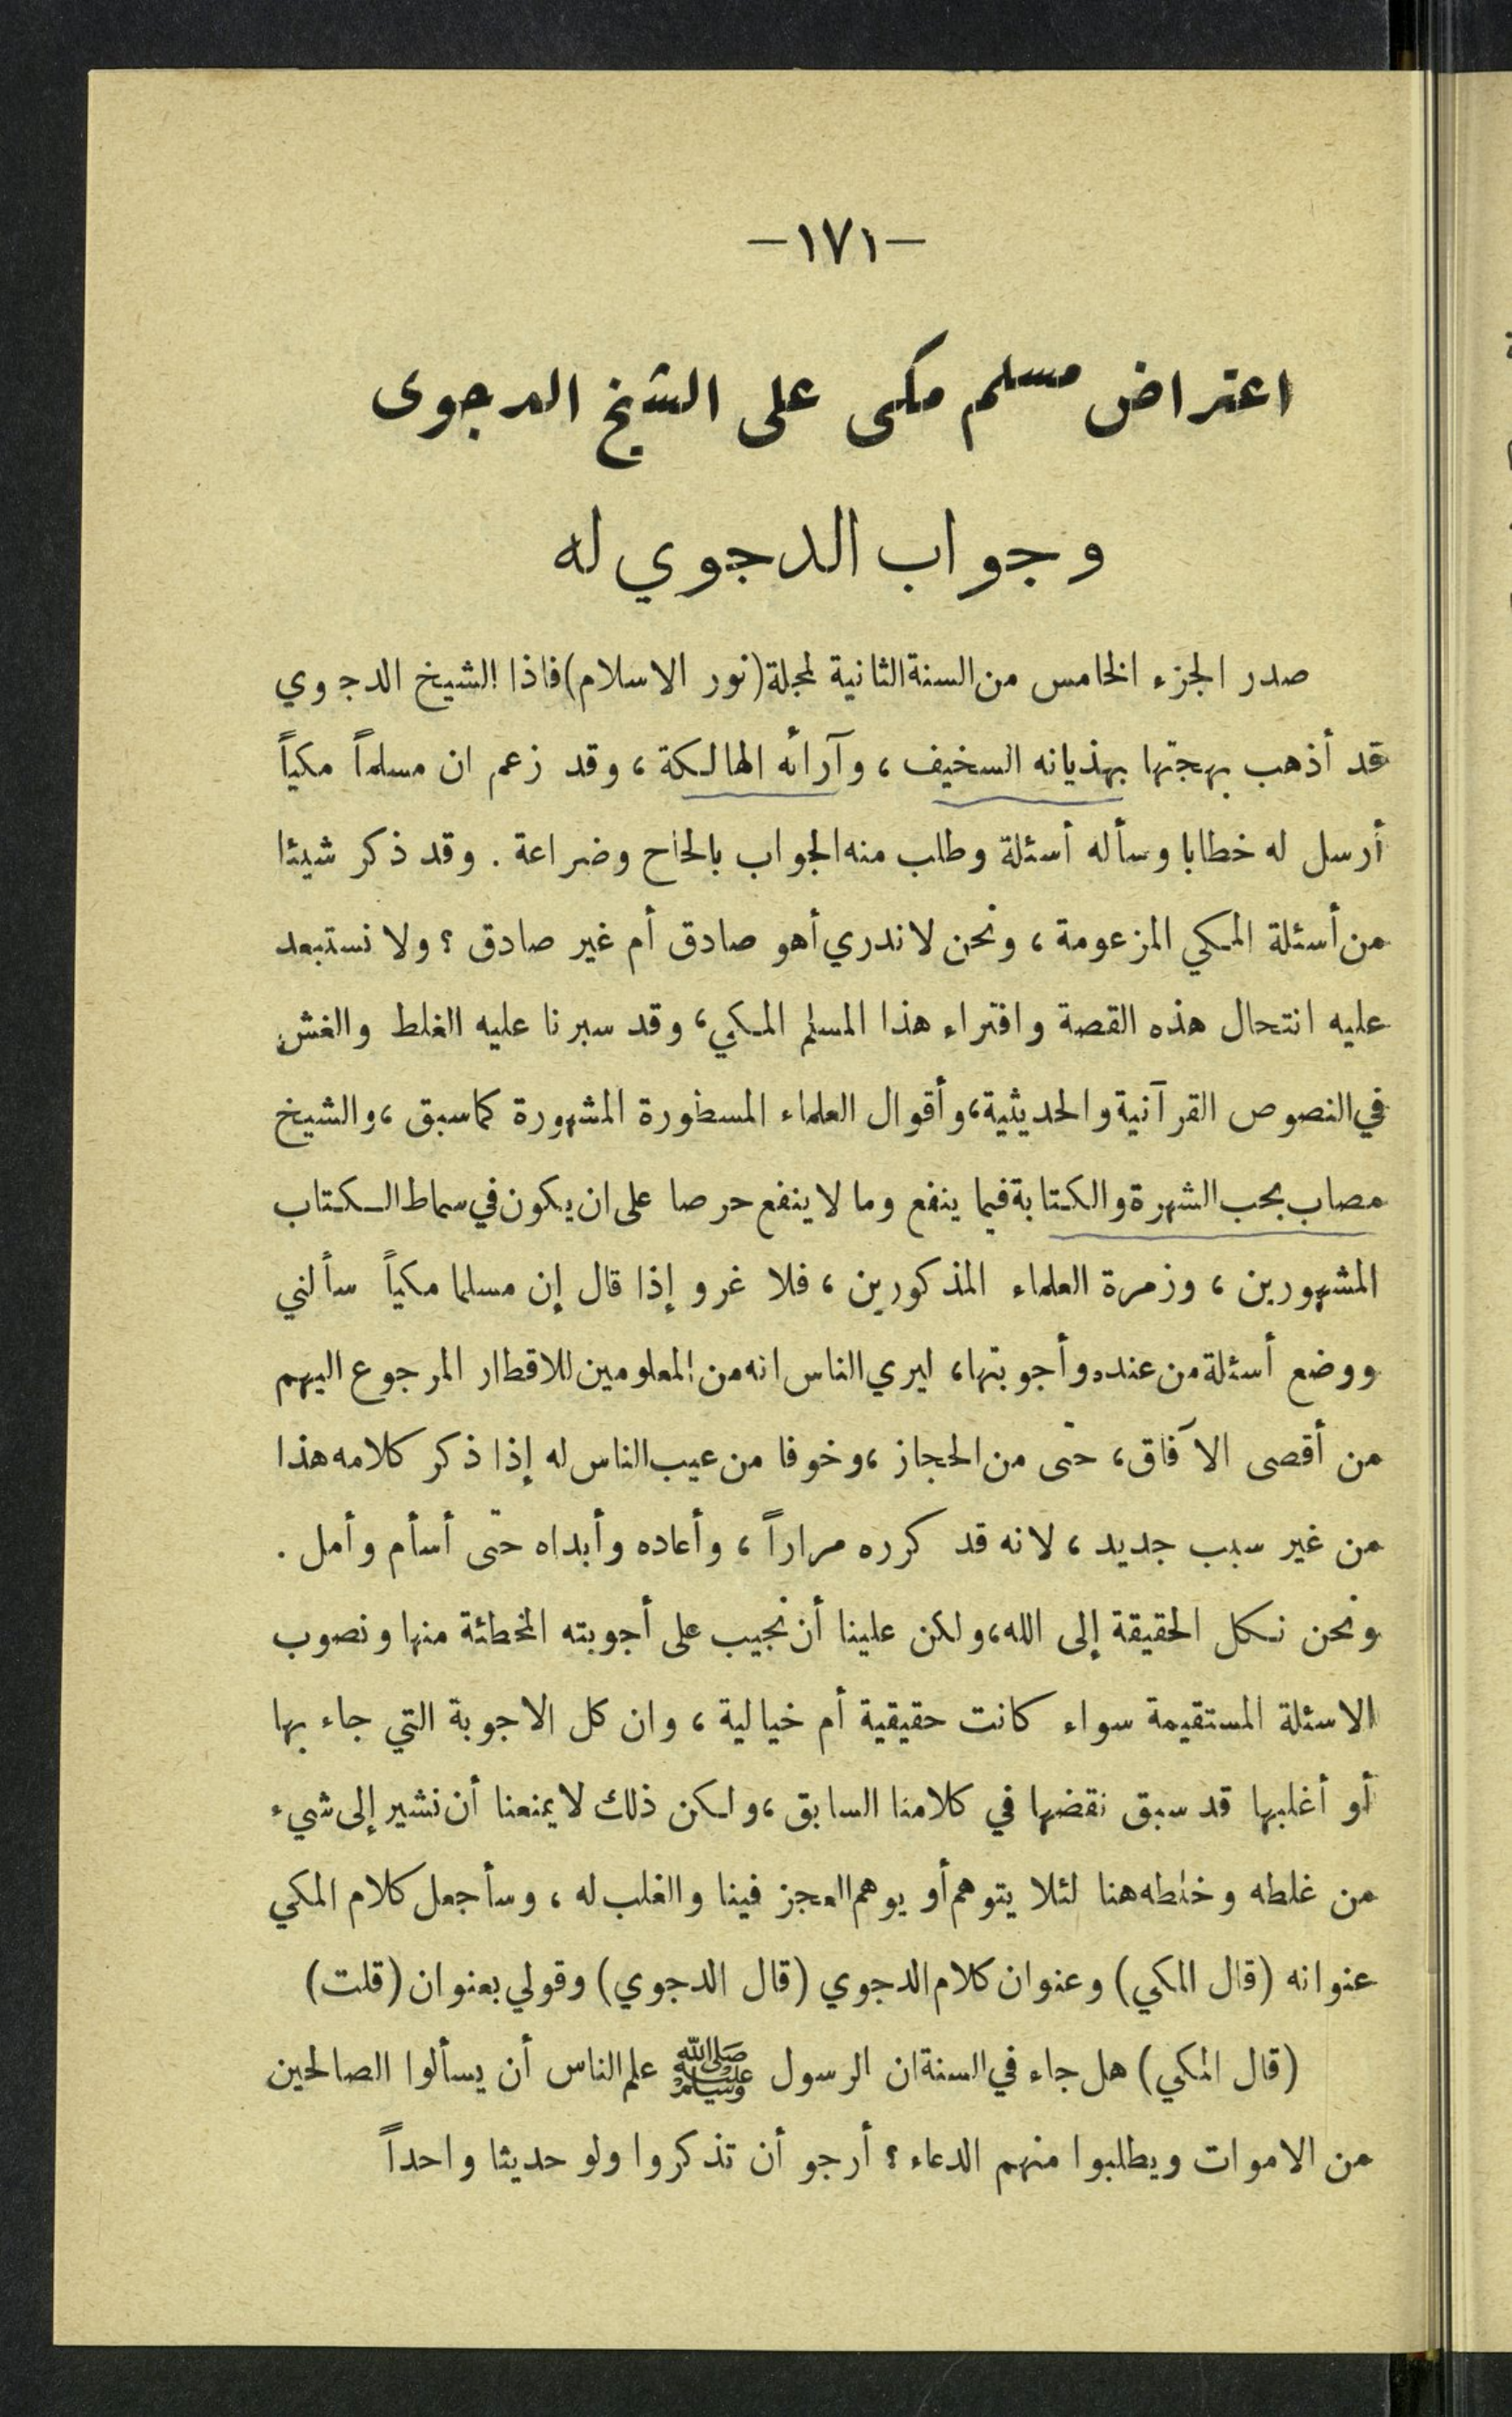 —١٧١—
اعتراض مسلم مكى على الشيخ الدجوى
وجواب الدجوي له
صدر الجزء الخامس من السنة الثانية لمجلة (نور الاسلام) فاذا الشيخ الدجوي
قد أذهب بهجتها بهذيانه السخيف ، وآرائه الهالكة ، وقد زعم ان مسلماً مكياً
أرسل له خطابا وسأله أسئلة وطلب منه الجواب بالحاح وضراعة . وقد ذكر شيئا
من أسئلة المكي المزعومة ، ونحن لا ندري أهو صادق أم غير صادق ؟ ولا نستبعد
عليه انتحال هذه القصة وافتراء هذا المسلم المكي ، وقد سبرنا عليه الغلط والغش
في النصوص القرآنية والحديثية ، وأقوال العلماء المسطورة المشهورة كما سبق ، والشيخ
مصاب بحب الشهرة والكتابة فيما ينفع وما لا ينفع حرصا على ان يكون في سماط الكتاب
المشهورين ، وزمرة العلماء المذكورين ، فلا غرو إذا قال إن مسلما مكياً سألني
ووضع أسئلة من عنده وأجوبتها ، ليري الناس انه من المعلومين للاقطار المرجوع اليهم
من أقصى الآفاق ، حتى من الحجاز ، وخوفا من عيب الناس له إذا ذكر كلامه هذا
من غير سبب جديد ، لانه قد كرره مراراً ، وأعاده وأبداه حتى أسأم وأمل .
ونحن نكل الحقيقة إلى الله ، ولكن علينا أن نجيب على أجوبته المخطئة منها ونصوب
الاسئلة المستقيمة سواء كانت حقيقية أم خيالية ، وان كل الاجوبة التي جاء بها
أو أغلبها قد سبق نقضها في كلامنا السابق ، ولكن ذلك لا يمنعنا أن نشير إلى شيء
من غلطه وخلطه هنا لئلا يتوهم أو يوهم العجز فينا والغلب له ، وسأجعل كلام المكي
عنوانه (قال المكي) وعنوان كلام الدجوي (قال الدجوي) وقولي بعنوان (قلت)
(قال المكي) هل جاء في السنة ان الرسول ﷺ علم الناس أن يسألوا الصالحين
من الاموات ويطلبوا منهم الدعاء ؟ أرجو أن تذكروا ولو حديثا واحداً